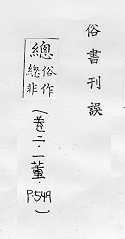 俗書刊誤
總俗作
緫非
(卷二.一董.
P.549)